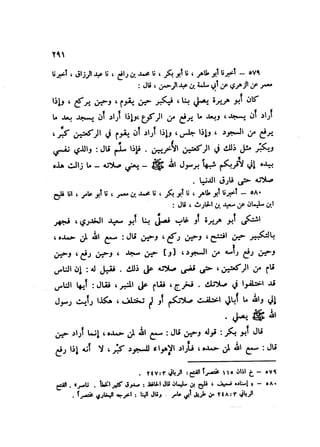 ٢٩١
٥٧٩ - أخبرنا أبو طاهر ، نا أبو بكر ، نا محمد بن رافع ، نا عبد الرزاق ، أخبرنا
معمر عن الزهري عن أبي سلمة بن عبد الرحمن ، قال :
كان أبو هريرة يصلي بنا ، فيكبر حين يقوم ، وحين يركع ، وإذا
أراد أن يسجد ، وبعدما يرفع من الركوع ، وإذا أراد أن يسجد بعد ما
يرفع من السجود ، وإذا جلس ، وإذا أراد أن يقوم في الركعتين كبر ،
ويكبر مثل ذلك في الركعتين الأخريين . فإذا سلم قال : والذي نفسي
بيده إني لأقربكم شبهاً برسول الله ﷺ - يعني صلاته - ما زالت هذه
صلاته حتى فارق الدنيا .
٥٨٠ - أخبرنا أبو طاهر ، نا أبو بكر ، نا محمد بن معمر ، نا أبو عامر ، أنا فليح
بن سليمان عن سعيد بن الحارث ، قال :
اشتكى أبو هريرة أو غاب فصلى لنا أبو سعيد الخدري ، فجهر
بالتكبير حين افتتح ، وحين ركع ، وحين قال : سمع الله لمن حمده ،
وحين رفع رأسه من السجود ، [و] حين سجد ، وحين رفع ، وحين
قام من الركعتين ، حتى قضى صلاته على ذلك . فقيل له : إن الناس
قد اختلفوا في صلاتك . فخرج ، فقام على المنبر ، فقال : أيها الناس
إني والله ما أبالي اختلفت صلاتكم أو لم تختلف ، هكذا رأيت رسول
الله ﷺ يصلي .
قال أبو بكر : قوله وحين قال : سمع الله لمن حمده ، إنما أراد حين
قال : سمع الله لمن حمده ، فأراد الإهواء للسجود كبر ، لا أنه إذا رفع
٥٧٩ - خ الأذان ١١٥ مختصراً ؛ الفتح الرباني ٣ : ٢٤٧ .
٥٨٠ - إسناده ضعيف ، فليح بن سليمان قال الحافظ : صدوق كثير الخطأ . ناصر . الفتح
الرباني ٣ : ٢٤٨ من طريق أبي عامر . قلت : وأخرجه البخاري مختصراً .